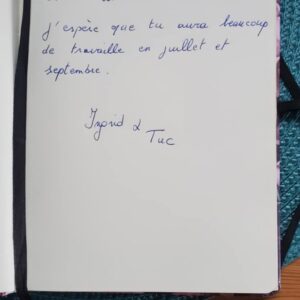 J'espère que tu aura beaucoup
de travaille en juillet et
septembre.
Ingrid &
Tuc